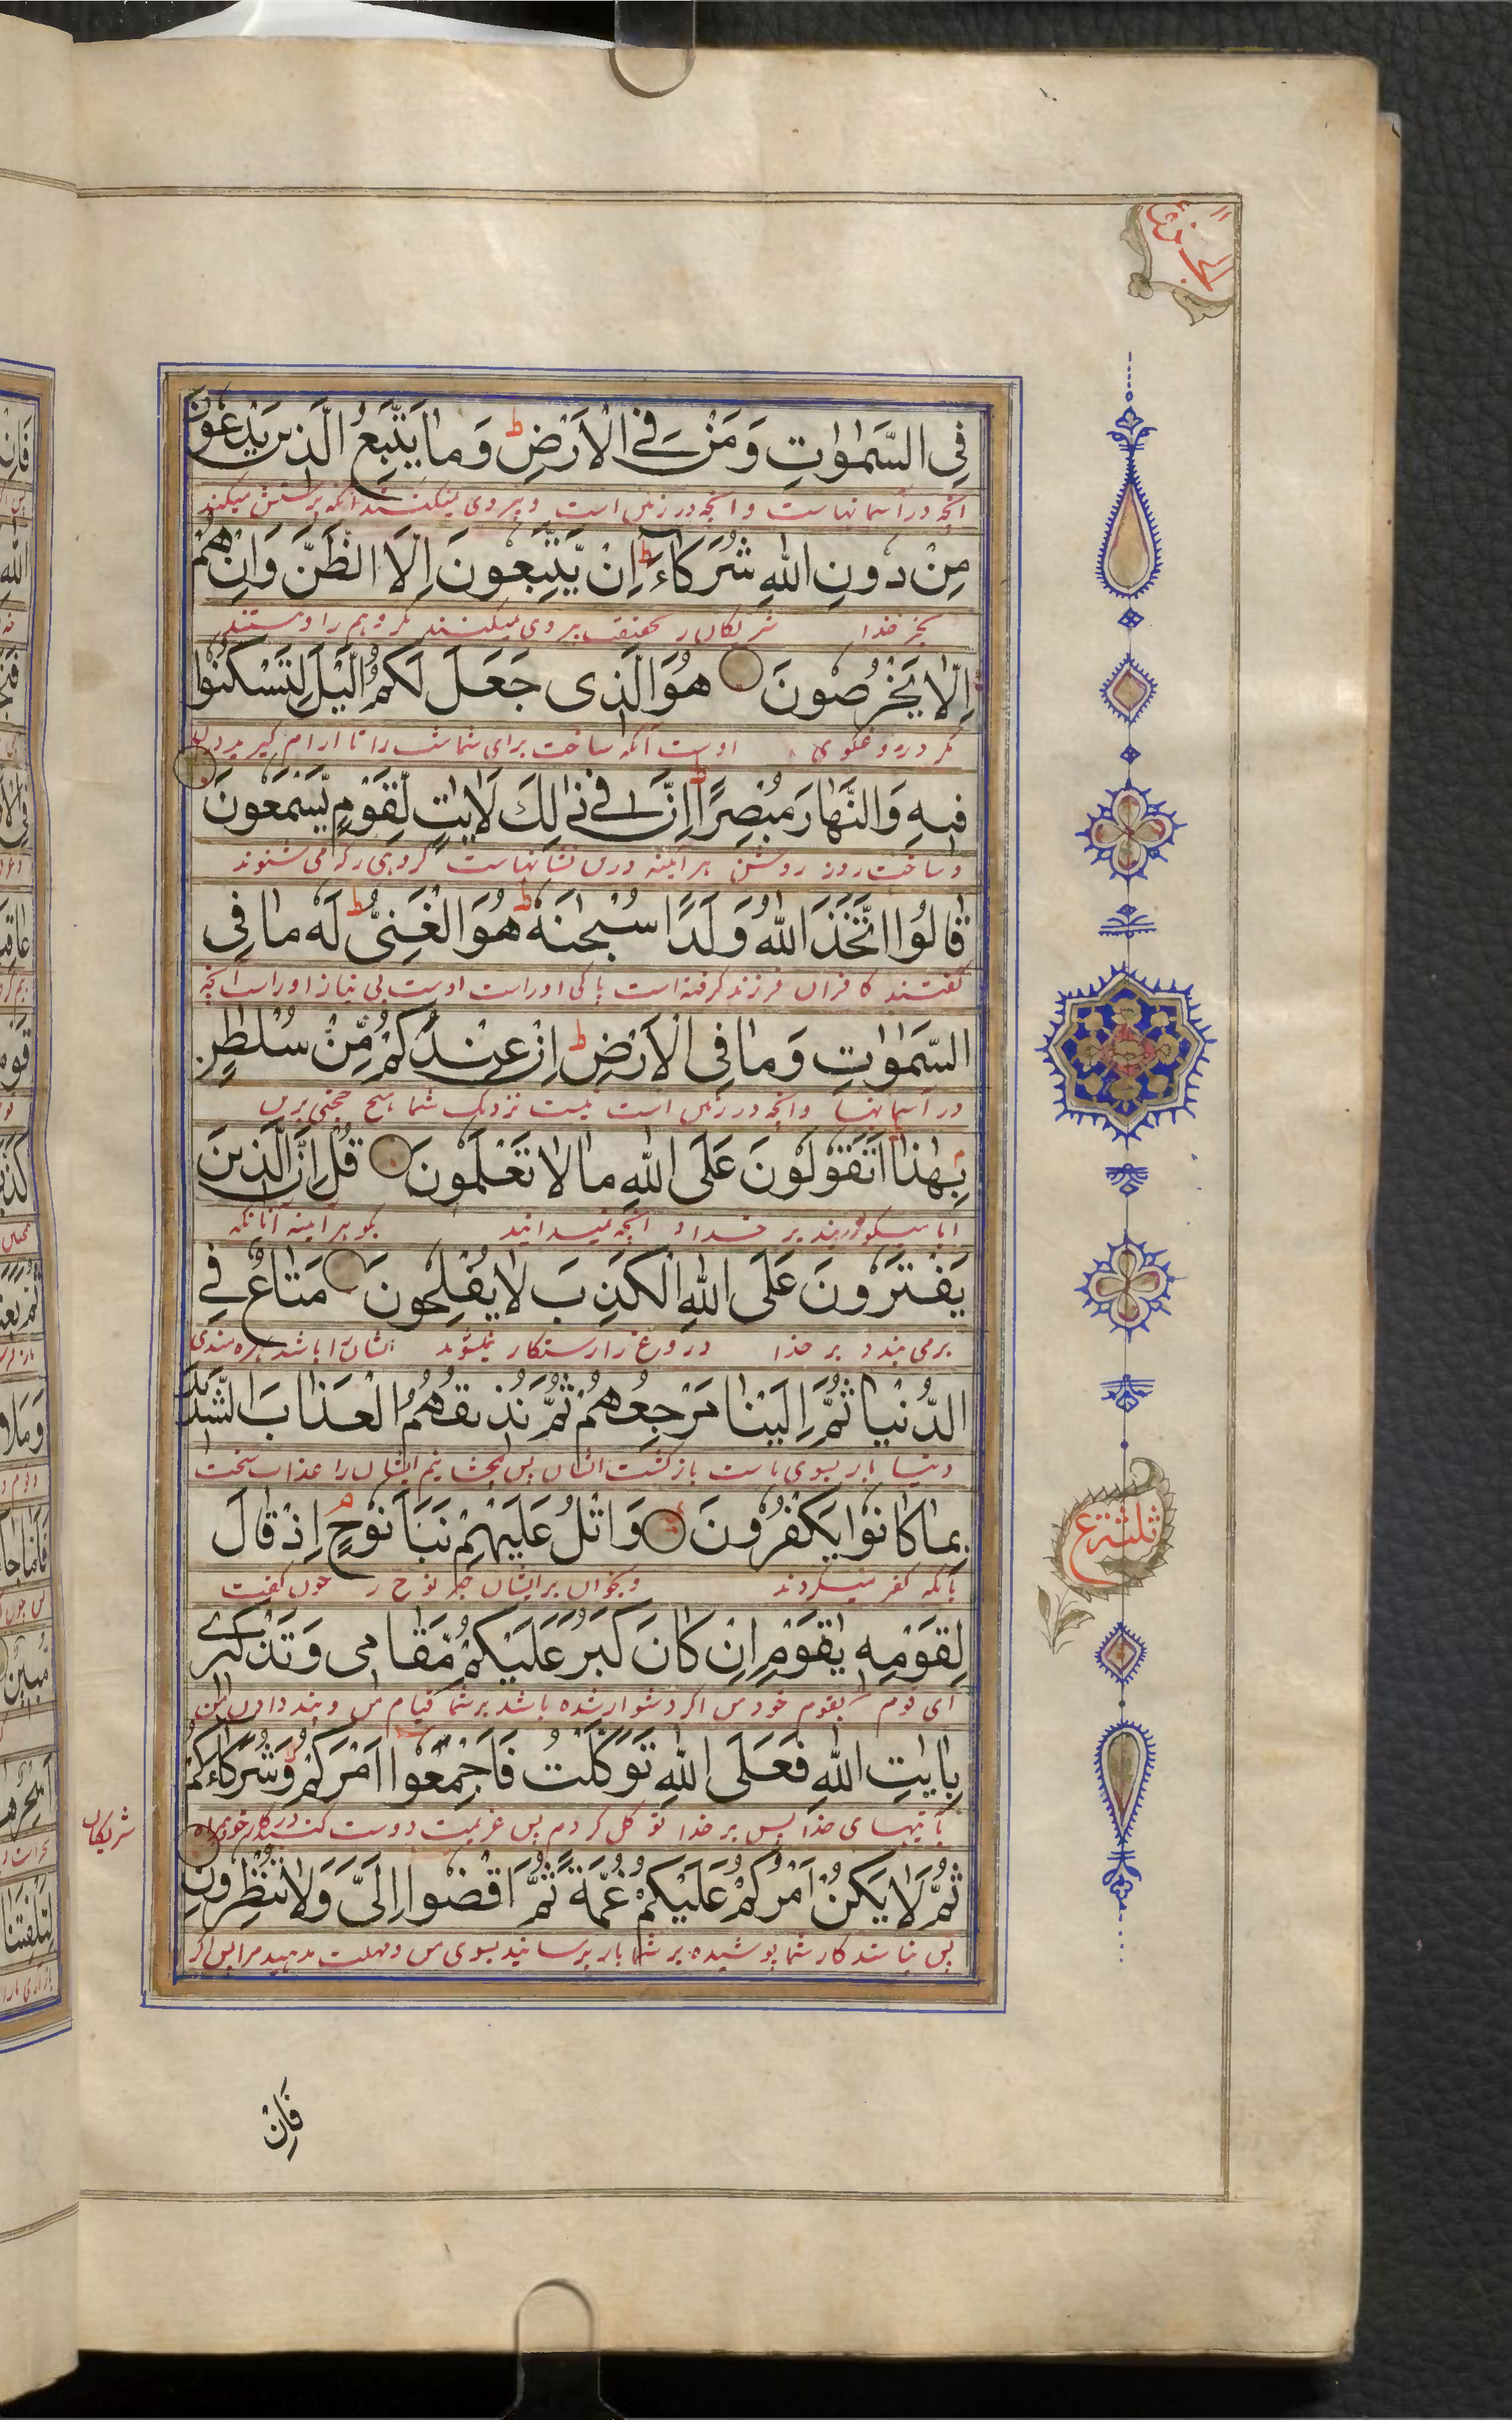 فِي السَّمٰوٰتِ وَمَنْ فِي الْاَرْضِ ط وَمَا يَتَّبِعُ الَّذِينَ يَدْعُونَ
انچه در آسمانهاست و انچه در زمین است و پیروی نمیکنند آنکه پرستش میکنند
مِنْ دُونِ اللّٰهِ شُرَكَاءَ ط اِنْ يَّتَّبِعُونَ اِلَّا الظَّنَّ وَاِنْ هُمْ
بجز خدا شریکان را بحقیقت پیروی نمیکنند مگر وهم را و نیستند
اِلَّا يَخْرُصُونَ هُوَ الَّذِی جَعَلَ لَكُمُ الَّيْلَ لِتَسْكُنُوْا
مگر دروغگوی اوست آنکه ساخت برای شما شب را تا آرام گیرید دران
فِيهِ وَالنَّهَارَ مُبْصِرًا ط اِنَّ فِي ذٰلِكَ لَاٰيٰتٍ لِّقَوْمٍ يَّسْمَعُونَ
و ساخت روز روشن هر آینه درین نشانهاست گروهی را که می شنوند
قَالُوا اتَّخَذَ اللّٰهُ وَلَدًا سُبْحٰنَهٗ ط هُوَ الْغَنِيُّ ط لَهٗ مَا فِی
گفتند کافران فرزند گرفته است پاکی اوراست اوست بی نیاز اوراست آنچه
السَّمٰوٰتِ وَمَا فِی الْاَرْضِ ط اِنْ عِنْدَكُمْ مِّنْ سُلْطٰنٍ
در آسمانها و انچه در زمین است نیست نزدیک شما هیچ حجتی برین
بِهٰذَا اَتَقُولُونَ عَلَی اللّٰهِ مَا لَا تَعْلَمُونَ قُلْ اِنَّ الَّذِينَ
ایا میگویید بر خدا انچه نمیدانید بگو هر آینه آنانکه
يَفْتَرُونَ عَلَی اللّٰهِ الْكَذِبَ لَا يُفْلِحُونَ مَتَاعٌ فِي
برمی بندد بر خدا دروغ را رستگار نیشوند ایشانرا باشد بهره مندی
الدُّنْيَا ثُمَّ اِلَيْنَا مَرْجِعُهُمْ ثُمَّ نُذِيقُهُمُ الْعَذَابَ الشَّدِيدَ
دنیا باز بسوی ماست بازگشت ایشان پس بچشانیم ایشان را عذاب سخت
بِمَا كَانُوا يَكْفُرُونَ ع وَاتْلُ عَلَيْهِمْ نَبَاَ نُوحٍ م اِذْ قَالَ
بآنکه کفر میکردند و بخوان بر ایشان خبر نوح را چون گفت
لِقَوْمِهٖ يٰقَوْمِ اِنْ كَانَ كَبُرَ عَلَيْكُمْ مَّقَامِی وَتَذْكِيْرِي
ای قوم بقوم خود من اگر دشوار شده باشد بر شما قیام من و پند دادن من
بِاٰيٰتِ اللّٰهِ فَعَلَی اللّٰهِ تَوَكَّلْتُ فَاَجْمِعُوا اَمْرَكُمْ وَشُرَكَاءَكُمْ
بآیتهای خدا پس بر خدا توکل کردم پس عزیمت دوست کنید در کار خود با
شریکان
ثُمَّ لَا يَكُنْ اَمْرُكُمْ عَلَيْكُمْ غُمَّةً ثُمَّ اقْضُوا اِلَیَّ وَلَا تُنْظِرُونِ
پس نباشد کار شما پوشیده بر شما باز برسانید بسوی من و مهلت مدهید مرا پس اگر
فَاِنْ
ثلثة ع